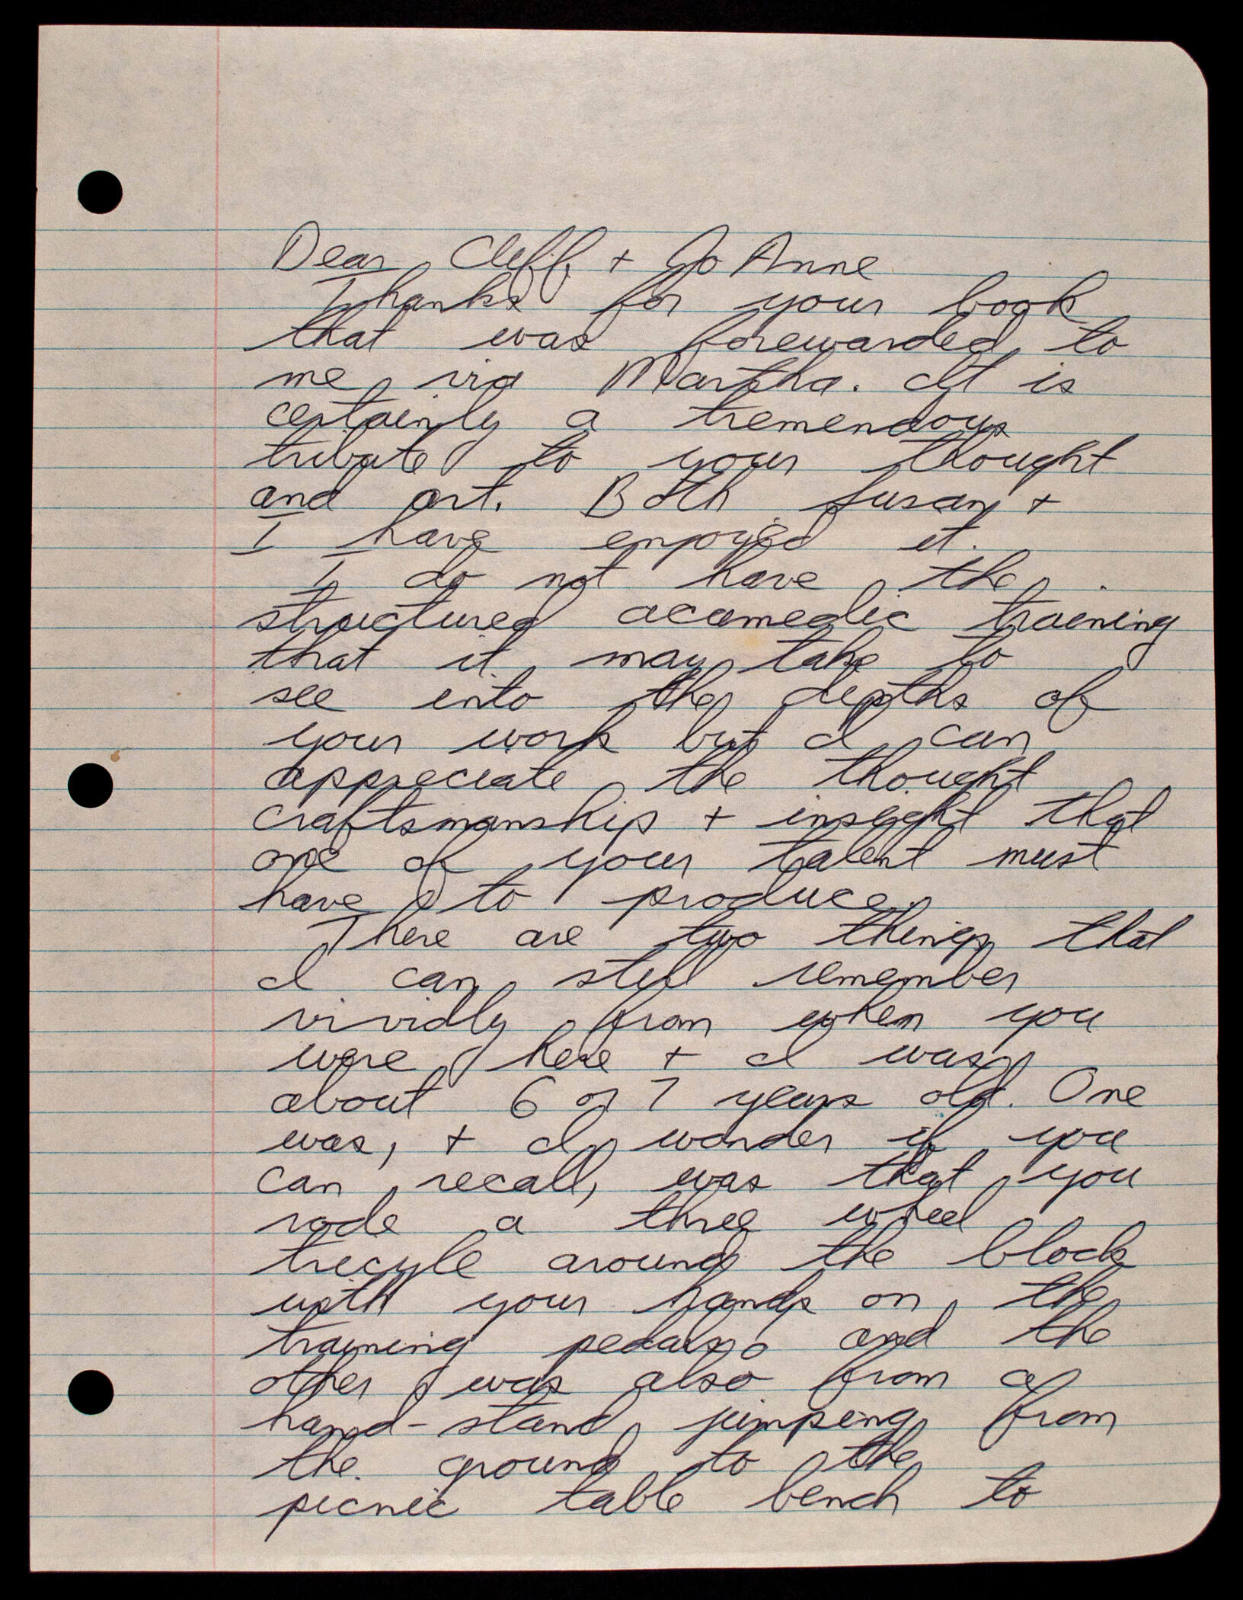 Dear Cliff + Jo Anne
Thanks for your book
that was forewarded to
me via Martha. It is
certainly a tremendous
tribute to your thought
and art. Both Susan +
I have enjoyed it.
I do not have the
structured acamedic training
that it may take to
see into the depths of
your work but I can
appreciate the thought
craftsmanship + insight that
one of your talent must
have to produce.
There are two things that
I can still remember
vividly from when you
were here + I was
about 6 or 7 years old. One
was, + I wonder if you
can recall, was that you
rode a three wheel
tricyle around the block
with your hands on the
training pedals, and the
other was also from a
hand-stand jumping from
the ground to the
picnic table bench to